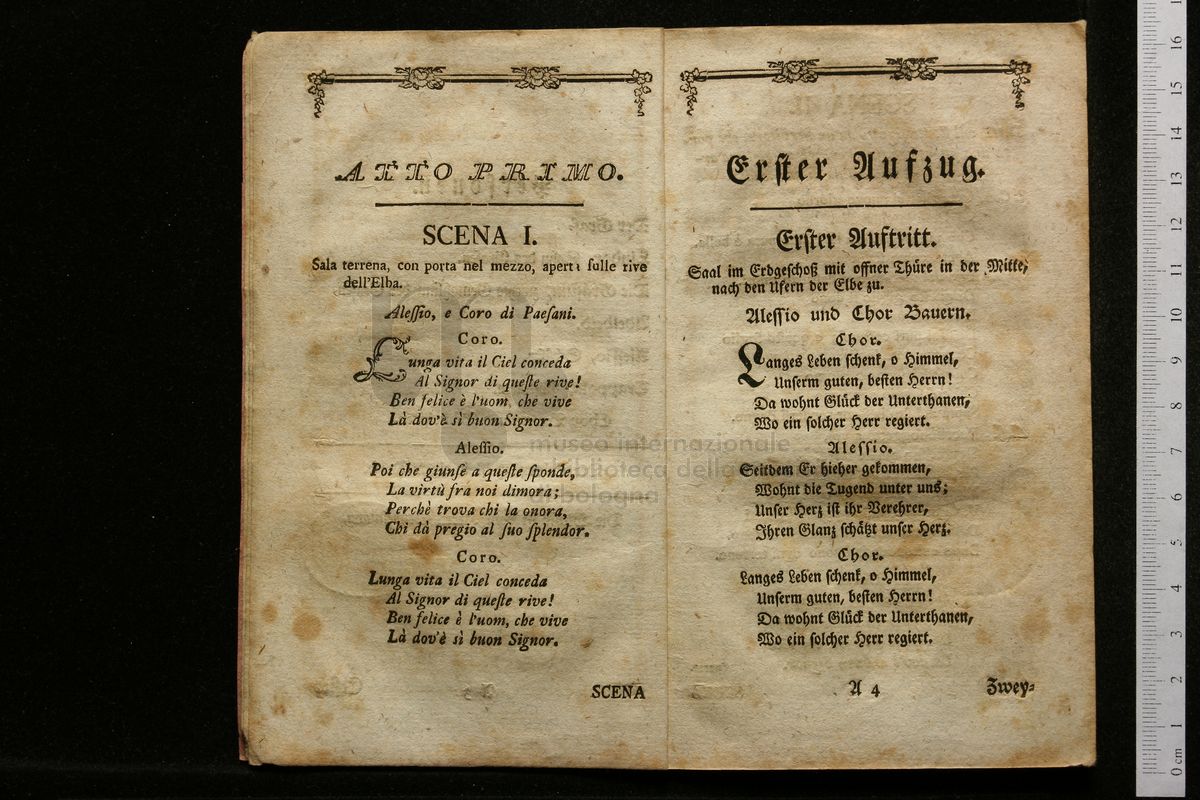 ATTO PRIMO.
SCENA I.
Sala terrena, con porta nel mezzo, aperta ſulle rive
dell'Elba.
Aleſſio, e Coro di Paeſani.
Coro.
Lunga vita il Ciel conceda
Al Signor di queſte rive!
Ben felice è l'uom, che vive
Là dov'è sì buon Signor.
Aleſſio.
Poi che giunſe a queſte ſponde,
La virtù fra noi dimora;
Perchè trova chi la onora,
Chi dà pregio al ſuo ſplendor.
Coro.
Lunga vita il Ciel conceda
Al Signor di queſte rive!
Ben felice è l'uom, che vive
Là dov'è sì buon Signor.
SCENA
Erſter Aufzug.
Erſter Auftritt.
Saal im Erdgeſchoß mit offner Thüre in der Mitte,
nach den Ufern der Elbe zu.
Aleſſio und Chor Bauern.
Chor.
Langes Leben ſchenk, o Himmel,
Unſerm guten, beſten Herrn!
Da wohnt Glück der Unterthanen,
Wo ein ſolcher Herr regiert.
Aleſſio.
Seitdem Er hieher gekommen,
Wohnt die Tugend unter uns;
Unſer Herz iſt ihr Verehrer,
Ihren Glanz ſchätzt unſer Herz.
Chor.
Langes Leben ſchenk, o Himmel,
Unſerm guten, beſten Herrn!
Da wohnt Glück der Unterthanen,
Wo ein ſolcher Herr regiert.
A 4
Zwey-
museo internazionale
biblioteca della
bologna
0 cm 1 2 3 4 5 6 7 8 9 10 11 12 13 14 15 16